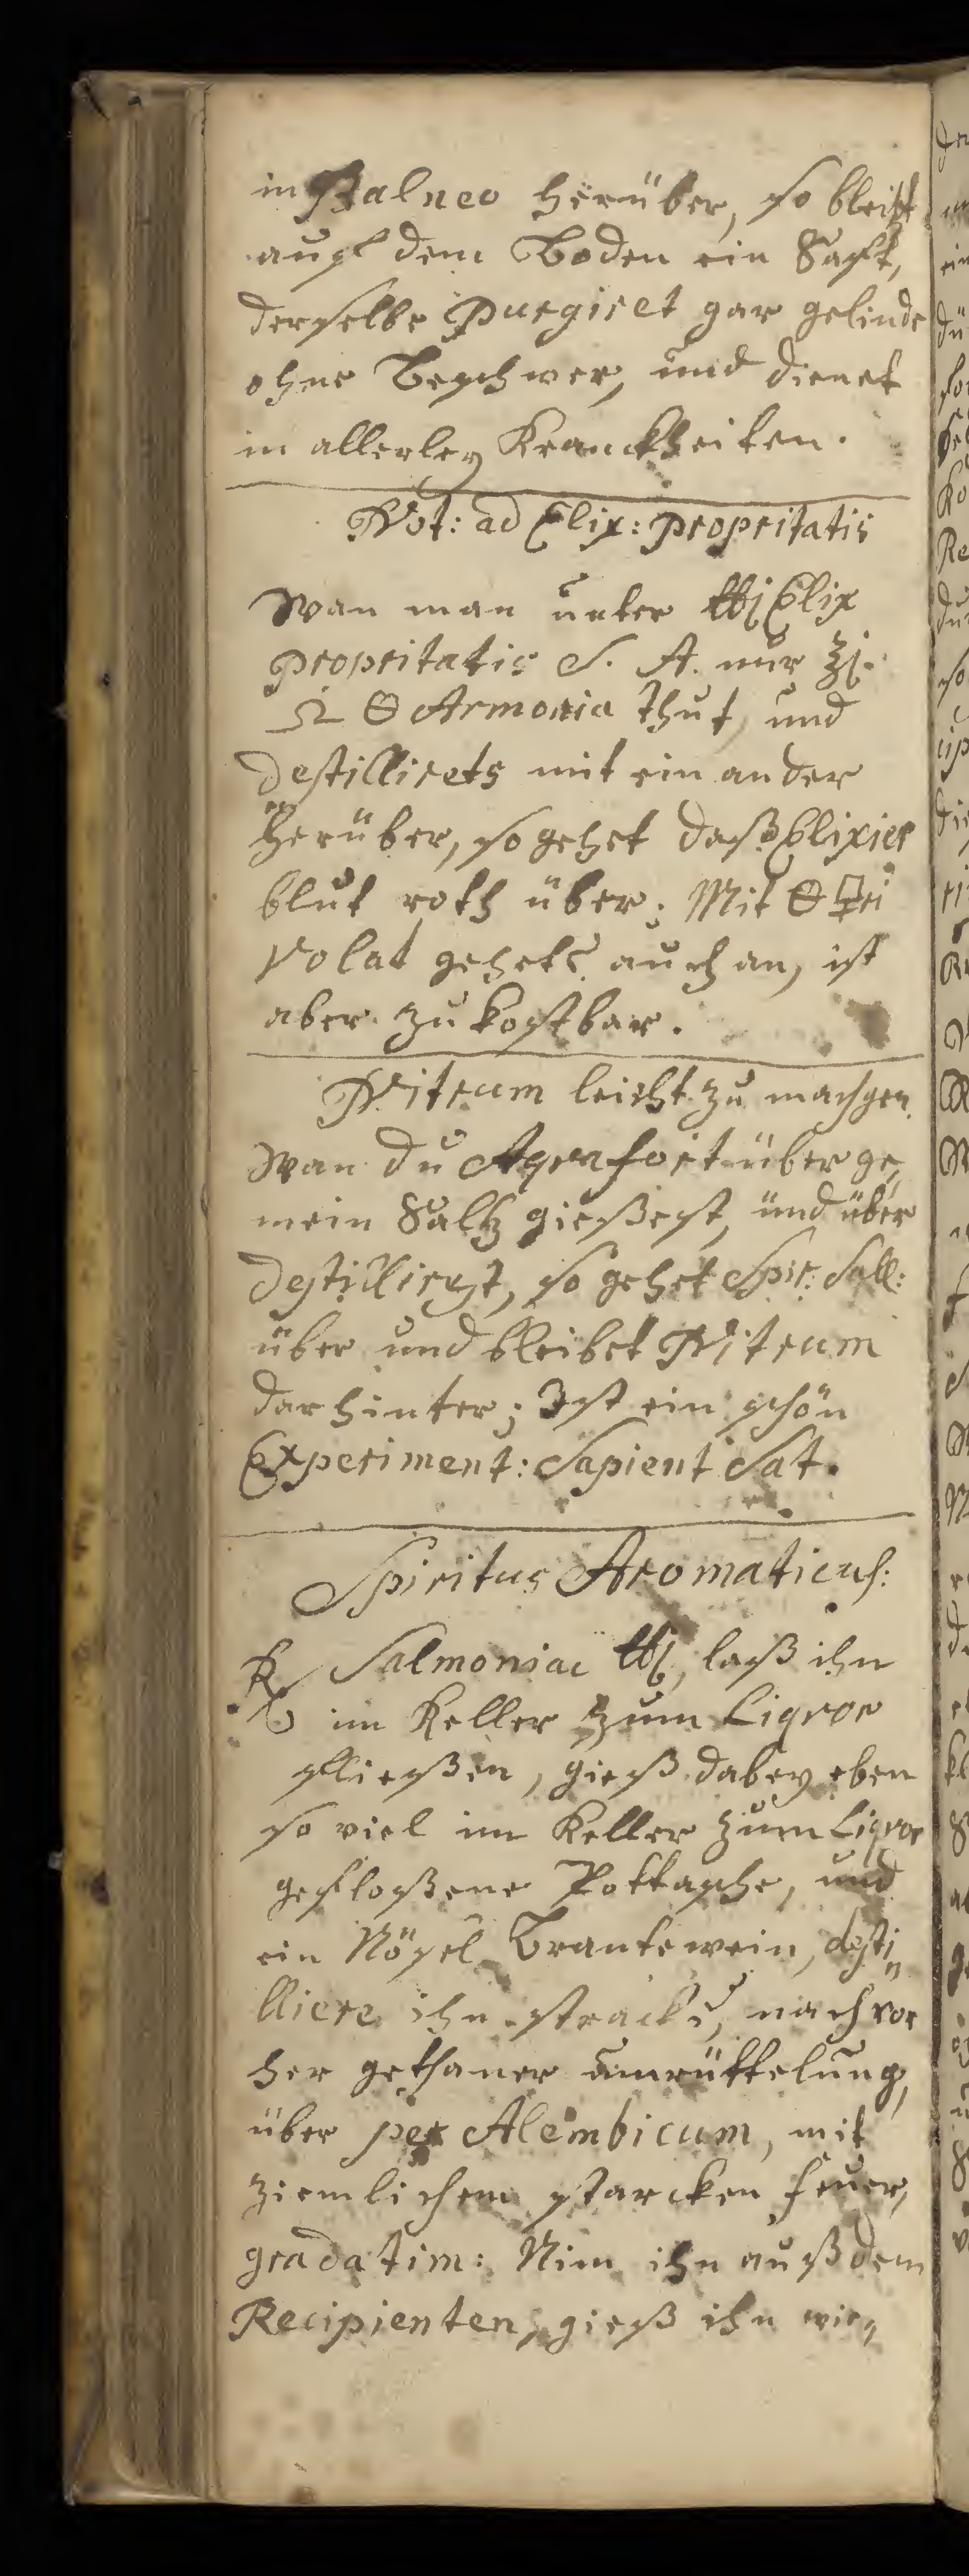 in Balneo herüber, so bleibt
auf dem Boden ein Safft,
derselbe Purgiret gar gelinde
ohne Beschwer, und dienet
in allerley Kranckheiten.
Not: ad Elix: propritatis
Wan man unter ℔j Elix
propritatis S. A. nur ℥j.
♎ 🜔 Armonia thut, und
destillirets mit ein ander
herüber, so gehet daß Elixier
blut roth über; Mit 🜔 🜿ri
Volat gehets auch an, ist
aber zu kostbar.
Nitrum leicht zu machen.
Wan du Aqvafort über ge„
mein Saltz gießest, und über
destillirest, so gehet Spir: Sall:
über und bleibet Nitrum
darhinter; Ist ein schön
Experiment: Sapient Sat.
Spiritus Aromaticus:
℞ Salmoniac ℔j, laß ihn
im Keller zum Liqvor
fließen, gieß dabey eben
so viel im Keller zum Liqvor
gefloßene Pottasche, und
ein Nösel Brantewein, desti„
lliere ihn stracks, nach vor
her gethaner umrüttelung,
über per Alembicum, mit
ziemlichem starcken feuer,
gradatim: Nim ihn auß dem
Recipienten, gieß ihn wie„